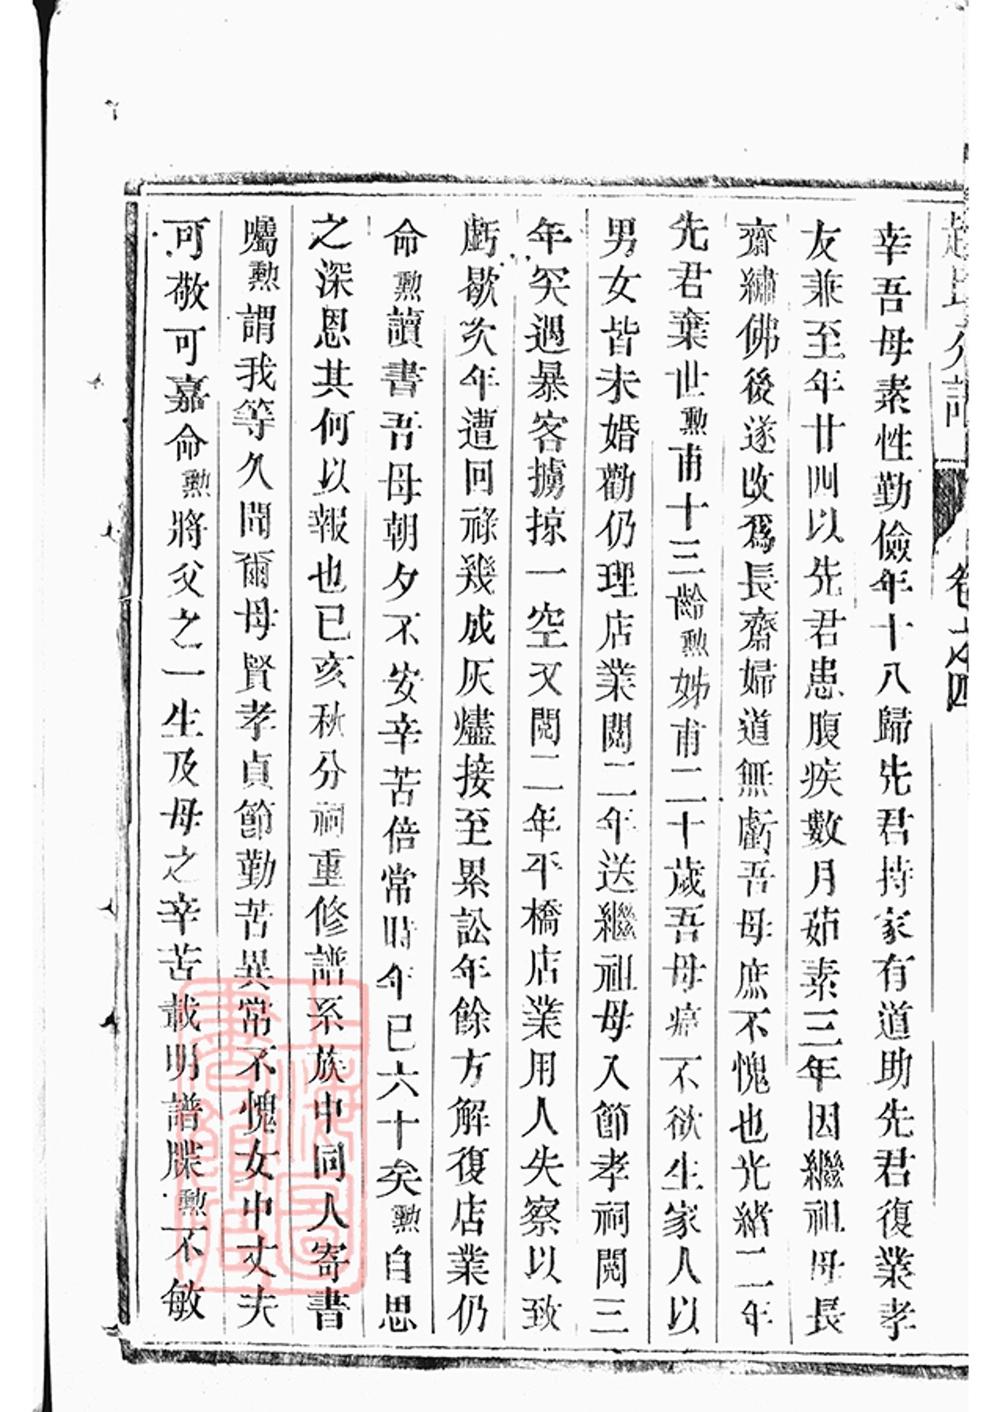 趙氏分譜
卷之四
幸吾母素性勤儉年十八歸先君持家有道助先君復業孝
友兼至年廿四以先君患腹疾數月茹素三年因繼祖母長
齋繡佛後遂改爲長齋婦道無虧吾母庶不愧也光緒二年
先君棄世勲甫十三齡勲姊甫二十歲吾母痛不欲生家人以
男女皆未婚勸仍理店業閱二年送繼祖母入節孝祠閱三
年突遇暴客擄掠一空又閱二年平橋店業用人失察以致
虧歇次年遭回祿幾成灰燼接至累訟年餘方解復店業仍
命勲讀書吾母朝夕不安辛苦倍常時年已六十矣勲自思
之深恩其何以報也已亥秋分祠重修譜系族中同人寄書
囑勲謂我等久聞爾母賢孝貞節勤苦異常不愧女中丈夫
可敬可嘉命勲將父之一生及母之辛苦載明譜牒勲不敏
上海圖書館藏